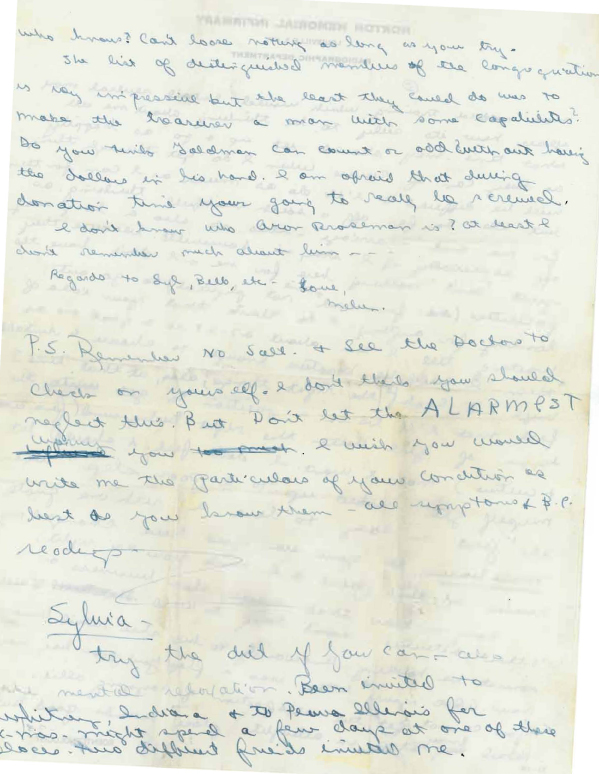 who knows? Can't loose nothing as long as you try.
The list of distinguished members of the congregation
is very impressive but the least they could do was to
make the treasurer a man with some capabilities?
Do you think Goldman can count or add without having
the dollars in his hand. I am afraid that during
donation time your going to really be screwed.
I don't know who is? at least I
don't remember much about him - - -
Regards to Syl, Beth, etc - Love,
P.S. Remember No Salt. & See the Doctors to
check on yourself. I don't think you should
neglect this. But Don't let the ALARMPST
you too much. I wish you would
write me the particulars of your condition as
best as you know them - all symptoms & B.P.
readings
Sylvia -
try the diet if you can - also
the mental relaxation. Been invited to
Whitney, Indiana & to Peoria Illinois for
X-mas. Might spend a few days at one of those
places. Two different friends invited me.